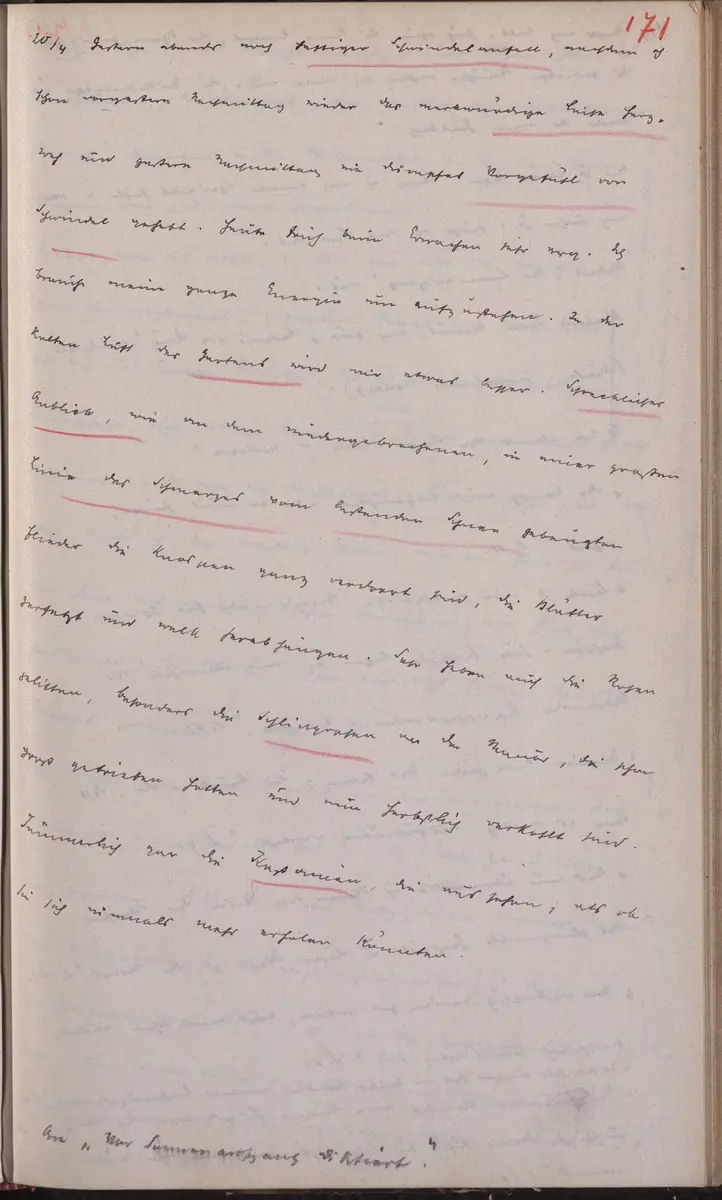 171
20/4 Gestern abends noch heftiger Schwindelanfall, nachdem ich
schon vorgestern Nachmittag wieder das merkwürdige leise Herz-
weh und gestern Nachmittag ein dumpfes Vorgefühl von
Schwindel gehabt. Heute früh beim Erwachen sehr arg. Ich
brauche meine ganze Energie um aufzustehen. In der
kalten Luft des Gartens wird mir etwas besser. Schrecklicher
Anblick, wie an dem niedergebrochenen, in einer großen
Linie des Schmerzes vom lastenden Schnee gebeugten
Flieder die Knospen ganz verdorrt sind, die Blätter
zerfetzt und welk herabhängen. Sehr haben auch die Rosen
gelitten, besonders die Schlingrosen an der Mauer, die schon
groß getrieben hatten und nun herbstlich verkohlt sind.
Jämmerlich gar die Kastanien, die aussehen, als ob
sie sich niemals mehr erholen könnten.
An „Vor Sonnenaufgang diktiert."